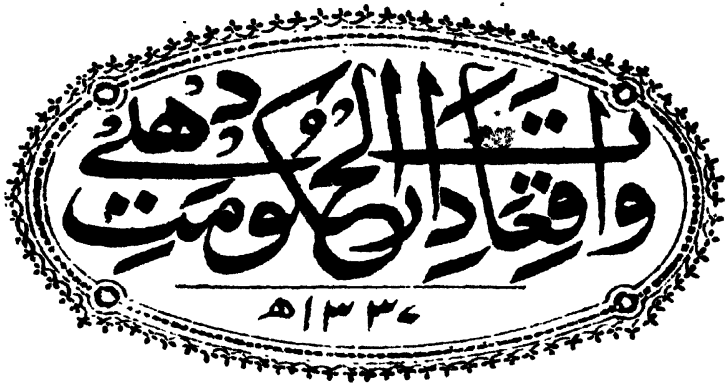 واقعات دارالحکومت دہلی
۱۳۳۷ھ